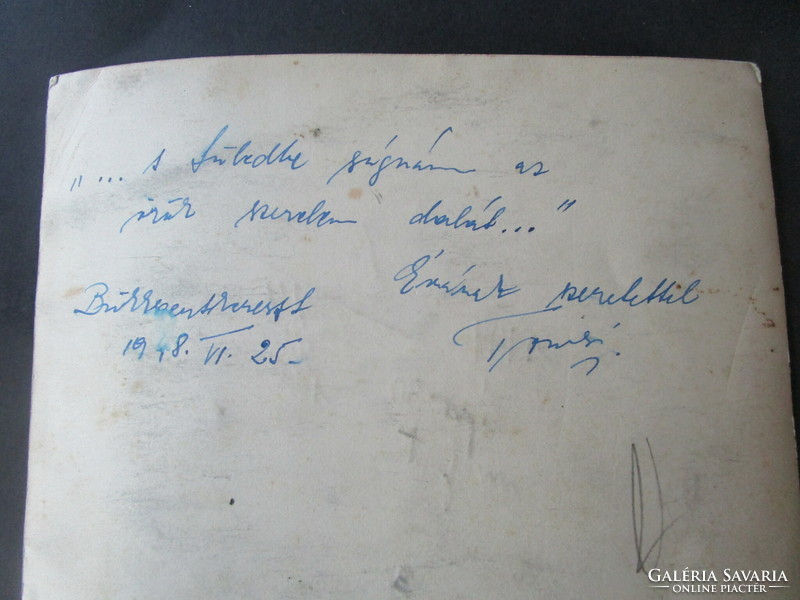 „... s füledbe súgnám az
örök szerelem dalát..."
Évának szeretettel
Bükkszentkereszt
1948. VI. 25.
GALÉRIA SAVARIA
ONLINE PIACTÉR